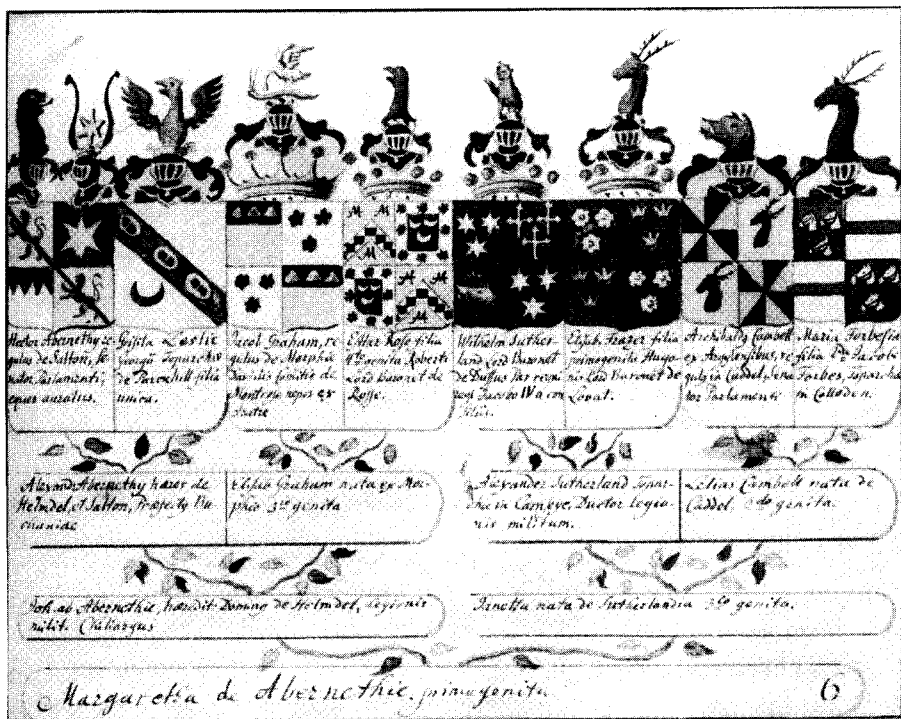 Hector Abernethy re
gulus de Salton, Se
nator Parlamenti,
eques auratus.
Gisila Leslie
Georgii Toparchæ
de Parcnhill filia
unica.
Jacob Graham, re
gulus de Morphie
familiæ de
Monterose nepos ex
fratre
Esther Rose filia
genita Roberti
Lord Baronet de
Rosse.
Wilhelm Suther
land Lord Baronet
de Duffus
regi Jacobo
Elisab. Frazer filia
primogenita Hugo
nis Lord Baronet de
Lovat.
Archibald Campbell
ex Argelensibus, re
gulus in Caddel, Sena
tor Parlamenti
Maria Forbesia
filia Jacobi
Forbes, Toparchæ
in Colloden.
Alexand Abernethy hæres de
Helmdel, et Salton, Præfect Bu
chaniae
Elisab Graham nata ex Mor
phie 3tio genita
Alexander Sutherland Topar
cha in Ductor legio
nis militum.
Letias Cambell nata de
Caddel, 2do genita.
Joh ab Abernethie, hæredit. Doming de Helmdel, legionis
milit. Chiliargus
Janetta nata de Sutherlandia genita.
Margaretha de Abernethie, primogenita
6